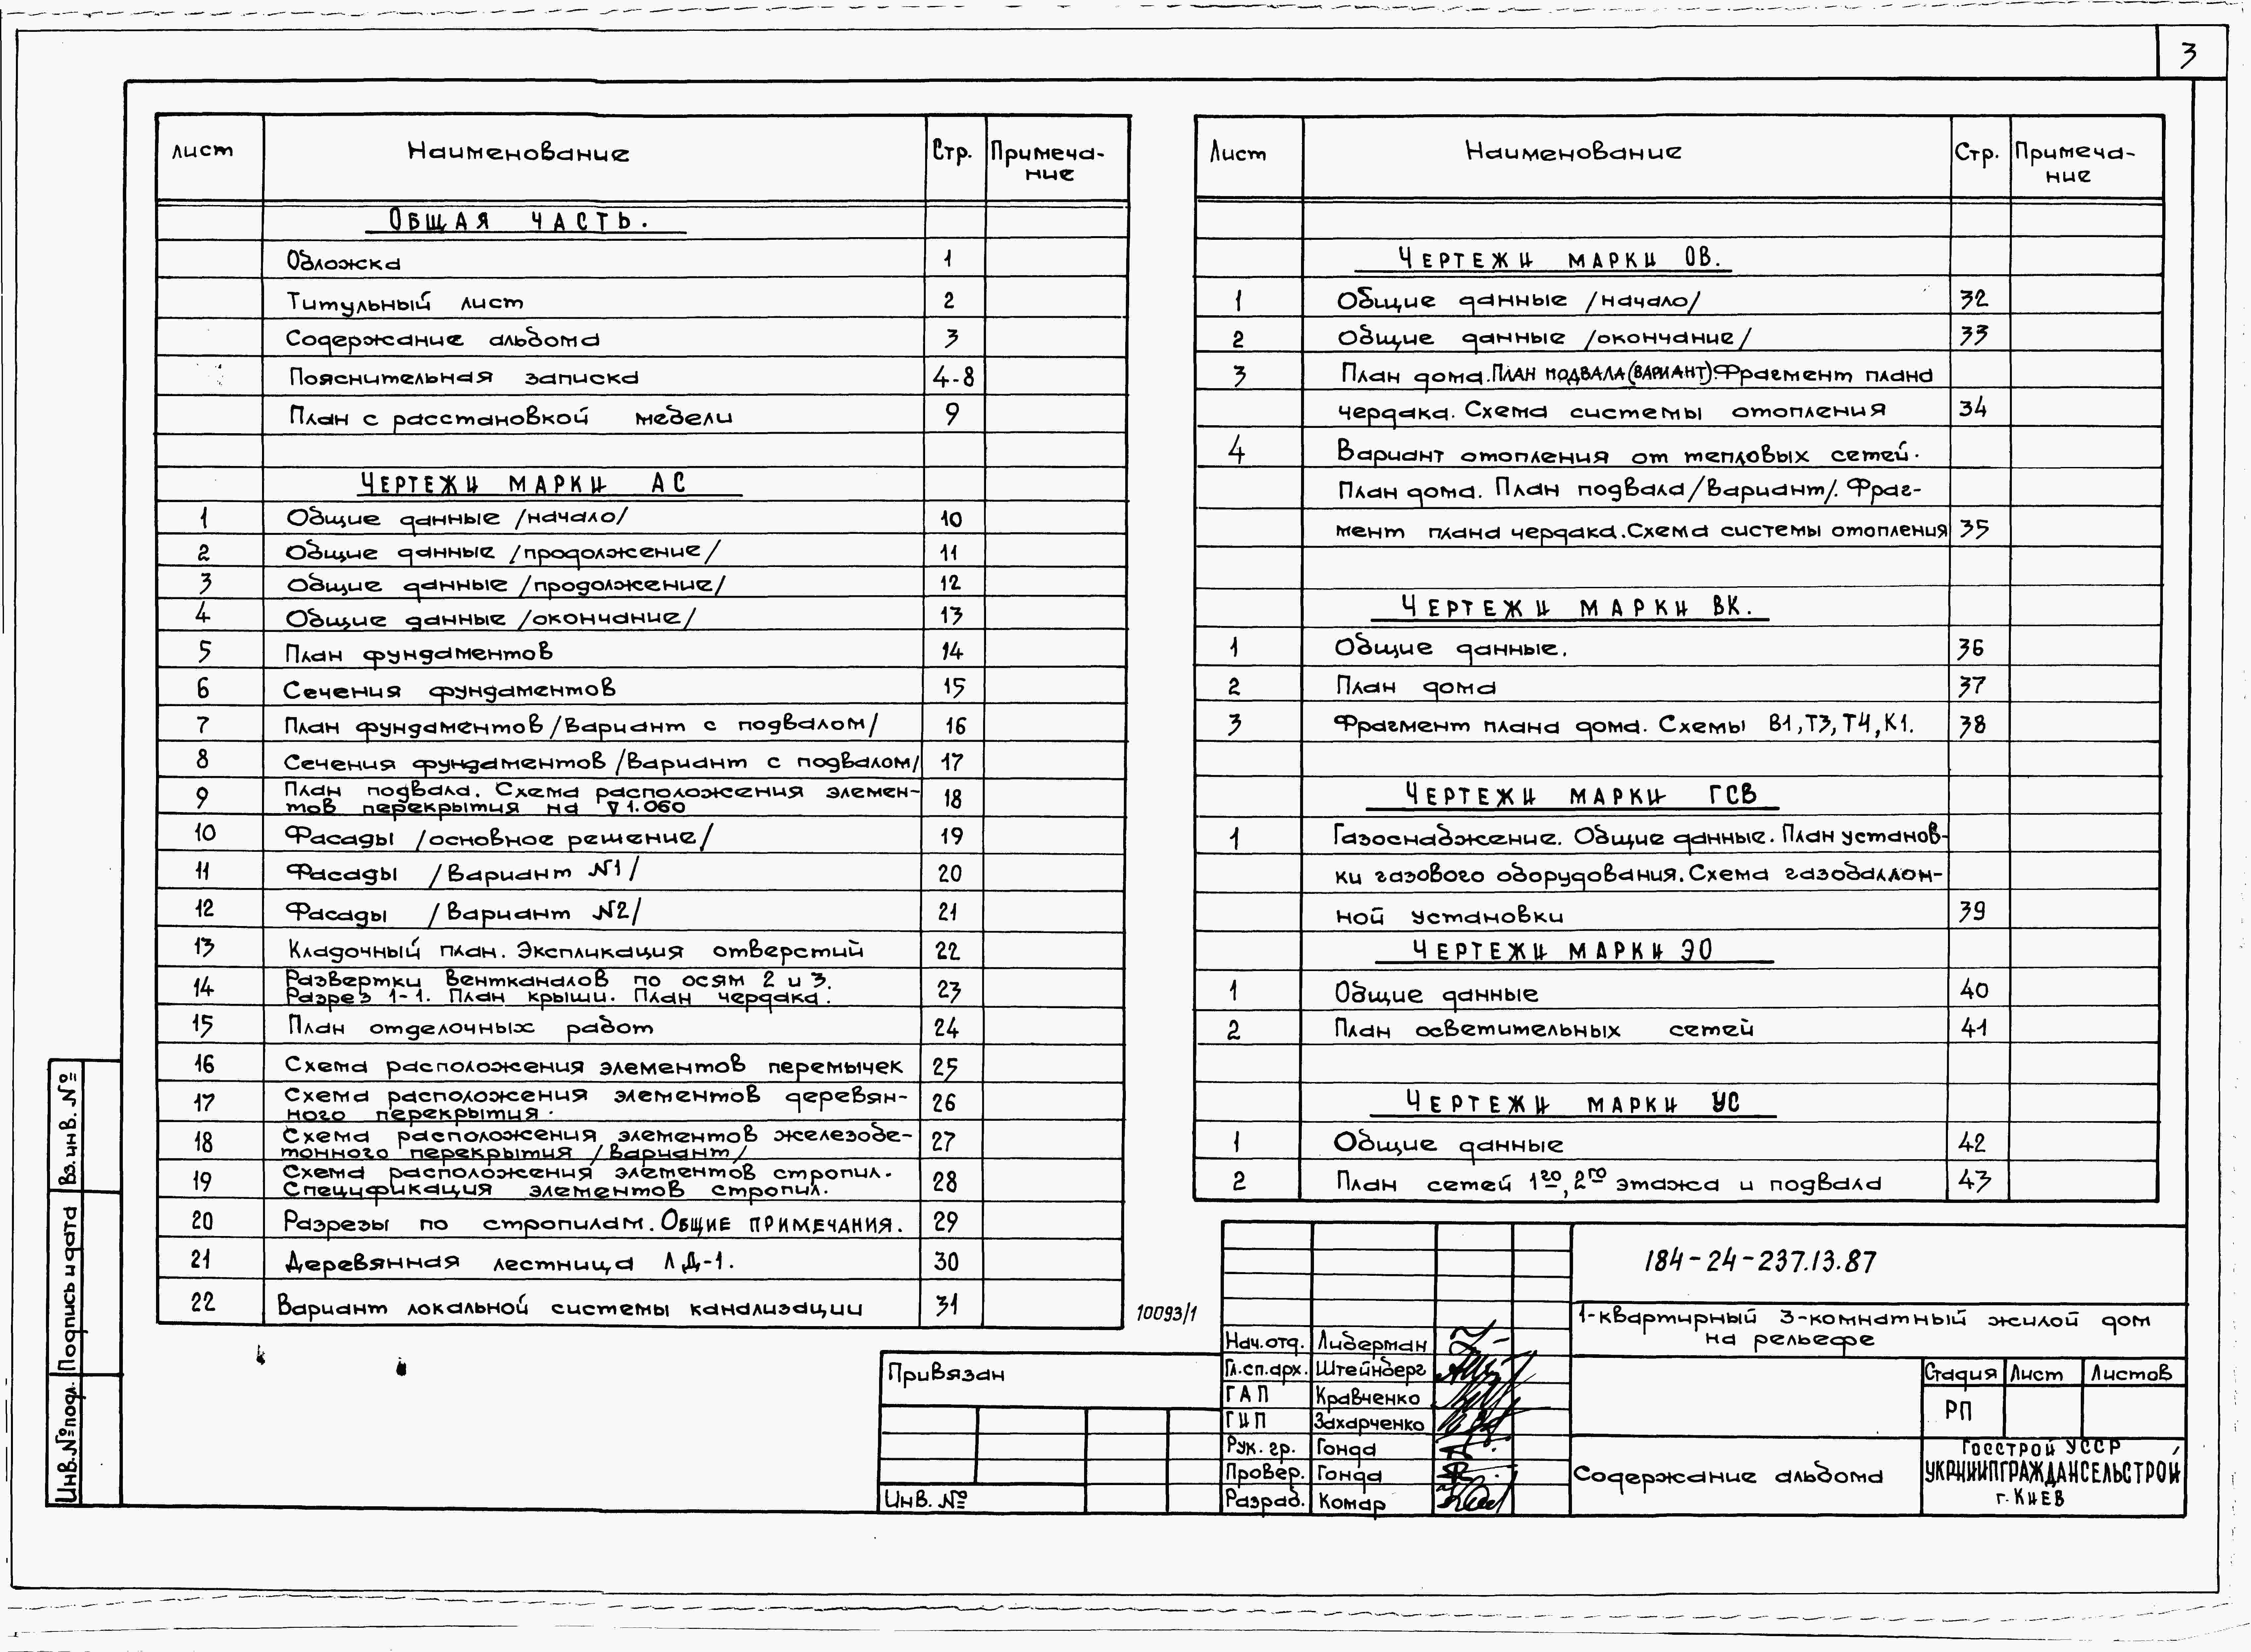 3
Лист Наименование Стр. Примеча-
ние
Общая часть.
Обложка 1
Титульный лист 2
Содержание альбома 3
Пояснительная записка 4-8
План с расстановкой мебели 9
Чертежи марки АС
1 Общие данные /начало/ 10
2 Общие данные /продолжение/ 11
3 Общие данные /продолжение/ 12
4 Общие данные /окончание/ 13
5 План фундаментов 14
6 Сечения фундаментов 15
7 План фундаментов /Вариант с подвалом/ 16
8 Сечения фундаментов /Вариант с подвалом/ 17
9 План подвала. Схема расположения элемен-
тов перекрытия на ∇ 1.060 18
10 Фасады /основное решение/ 19
11 Фасады /Вариант N1/ 20
12 Фасады /Вариант N2/ 21
13 Кладочный план. Экспликация отверстий 22
14 Развертки вентканалов по осям 2 и 3.
Разрез 1-1. План крыши. План чердака. 23
15 План отделочных работ 24
16 Схема расположения элементов перемычек 25
17 Схема расположения элементов деревян-
ного перекрытия. 26
18 Схема расположения элементов железобе-
тонного перекрытия /Вариант/ 27
19 Схема расположения элементов стропил.
Спецификация элементов стропил. 28
20 Разрезы по стропилам. Общие примечания. 29
21 Деревянная лестница ЛД-1. 30
22 Вариант локальной системы канализации 31
Лист Наименование Стр. Примеча-
ние
Чертежи марки ОВ.
1 Общие данные /начало/ 32
2 Общие данные /окончание/ 33
3 План дома. План подвала (вариант). Фрагмент плана
чердака. Схема системы отопления 34
4 Вариант отопления от тепловых сетей.
План дома. План подвала /Вариант/. Фраг-
мент плана чердака. Схема системы отопления 35
Чертежи марки ВК.
1 Общие данные. 36
2 План дома 37
3 Фрагмент плана дома. Схемы В1, Т3, Т4, К1. 38
Чертежи марки ГСВ
1 Газоснабжение. Общие данные. План установ-
ки газового оборудования. Схема газобаллон-
ной установки 39
Чертежи марки ЭО
1 Общие данные 40
2 План осветительных сетей 41
Чертежи марки УС
1 Общие данные 42
2 План сетей 1го, 2го этажа и подвала 43
10093/1
184-24-237.13.87
1-квартирный 3-комнатный жилой дом
на рельефе
Нач. отд. Либерман
Гл. сп. арх. Штейнберг
ГАП Кравченко
ГИП Захарченко
Рук. гр. Гонда
Провер. Гонда
Разраб. Комар
Стадия Лист Листов
РП
Содержание альбома
Госстрой УССР
УКРНИИПГРАЖДАНСЕЛЬСТРОЙ
г. Киев
Привязан
Инв. №
Вз. инв. №
Подпись и дата
Инв. № подл.